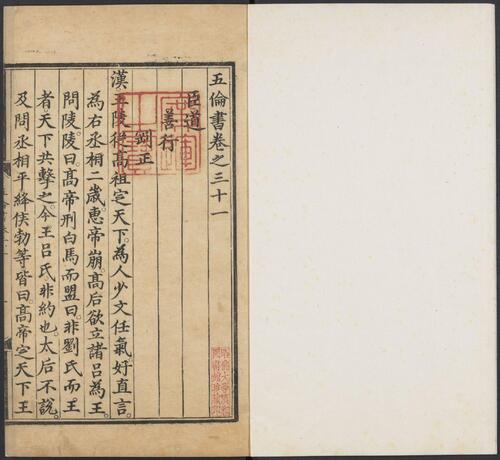 五倫書卷之三十一
臣道
善行
剛正
漢王陵從髙祖定天下。為人少文任氣。好直言。
為右丞相二歲。惠帝崩。髙后欲立諸吕為王。
問陵。陵曰。髙帝刑白馬而盟曰。非劉氏而王
者。天下共擊之。今王吕氏非約也。太后不說。
及問丞相平絳侯勃等皆曰。髙帝定天下王